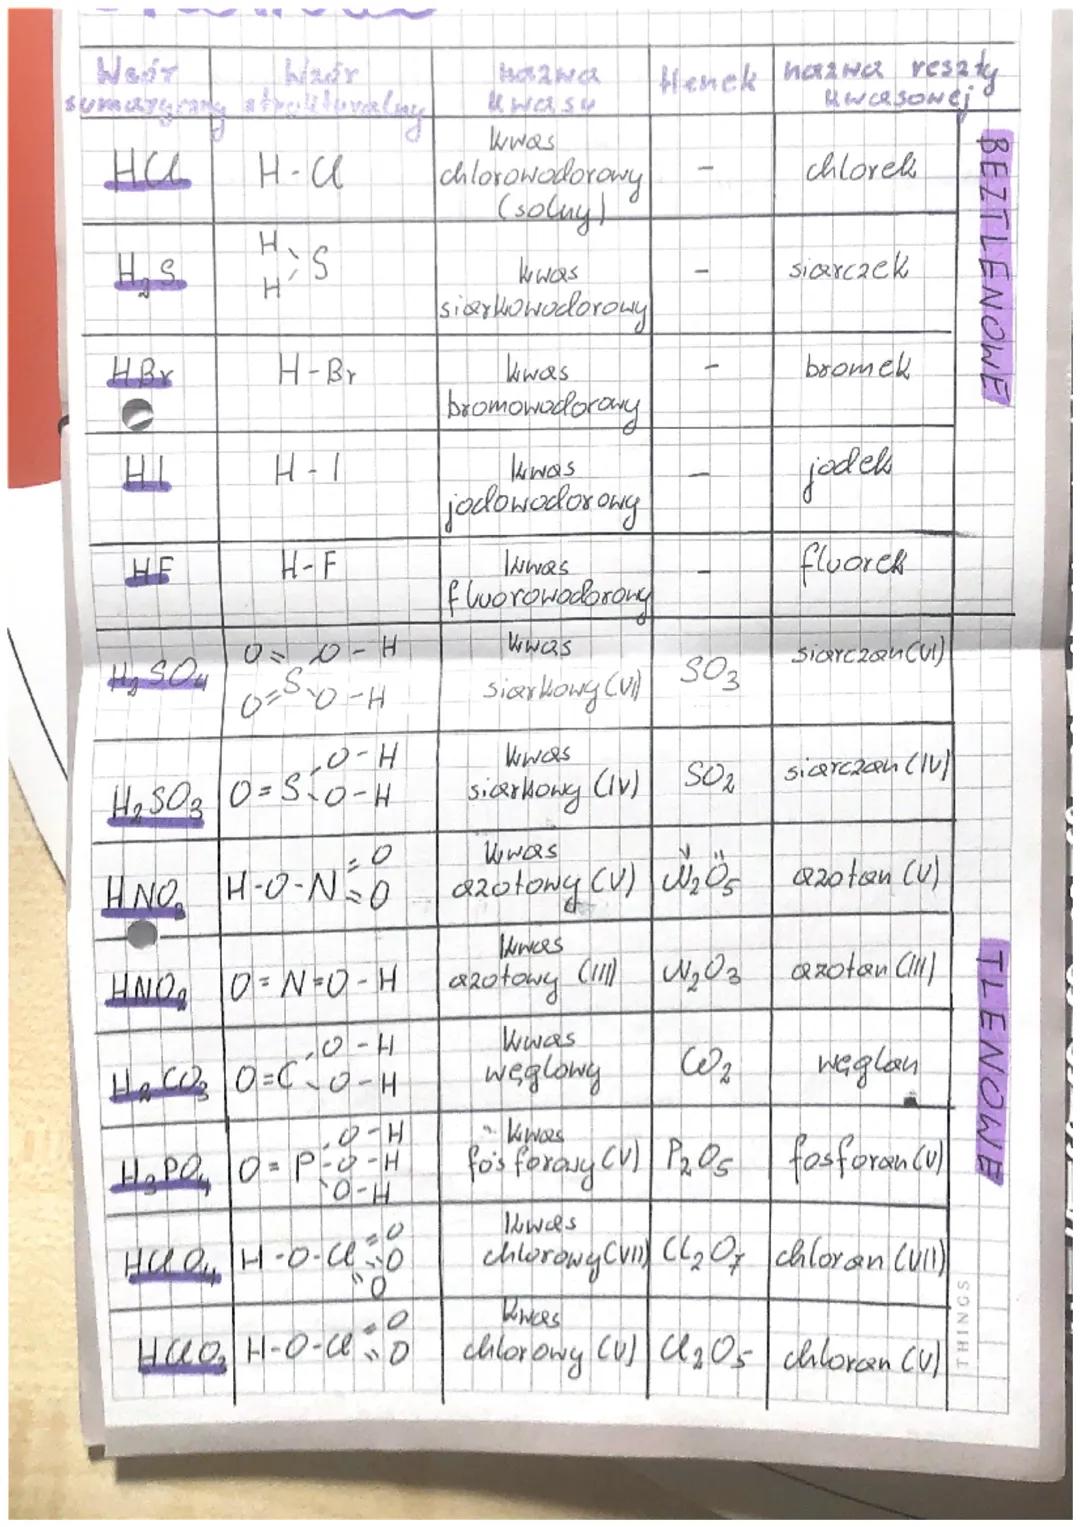 Wzór sumaryczny | Wzór strukturalny | nazwa kwasu | tlenek | nazwa reszty kwasowej
BEZTLENOWE
HCl | H-Cl | kwas chlorowodorowy (solny) | - | chlorek
H₂S | H H S | kwas siarkowodorowy | - | siarczek
HBr | H-Br | kwas bromowodorowy | - | bromek
HI | H-I | kwas jodowodorowy | - | jodek
HF | H-F | kwas fluorowodorowy | - | fluorek
TLENOWE
H₂SO₄ | O= O-H O=S O-H | kwas siarkowy (VI) | SO₃ | siarczan (VI)
H₂SO₃ | O=S O-H O-H | kwas siarkowy (IV) | SO₂ | siarczan (IV)
HNO₃ | H-O-N =O =O | kwas azotowy (V) | N₂O₅ | azotan (V)
HNO₂ | O=N=O-H | kwas azotowy (III) | N₂O₃ | azotan (III)
H₂CO₃ | O=C O-H O-H | kwas węglowy | CO₂ | węglan
H₃PO₄ | O=P O-H -O-H O-H | kwas fosforowy (V) | P₂O₅ | fosforan (V)
HClO₄ | H-O-Cl =O =O =O | kwas chlorowy (VII) | Cl₂O₇ | chloran (VII)
HClO₃ | H-O-Cl =O =O | kwas chlorowy (V) | Cl₂O₅ | chloran (V)
THINGS